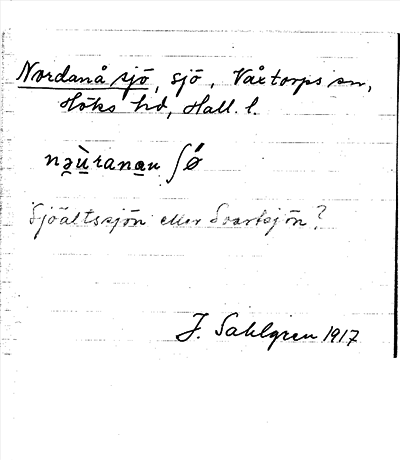 Nordanå sjö, sjö, Våxtorps sn,
Höks hd, Hall. l.
nə̯ùranau ʃǿ
Sjöaltssjön eller Svartsjön?
J. Sahlgren 1917